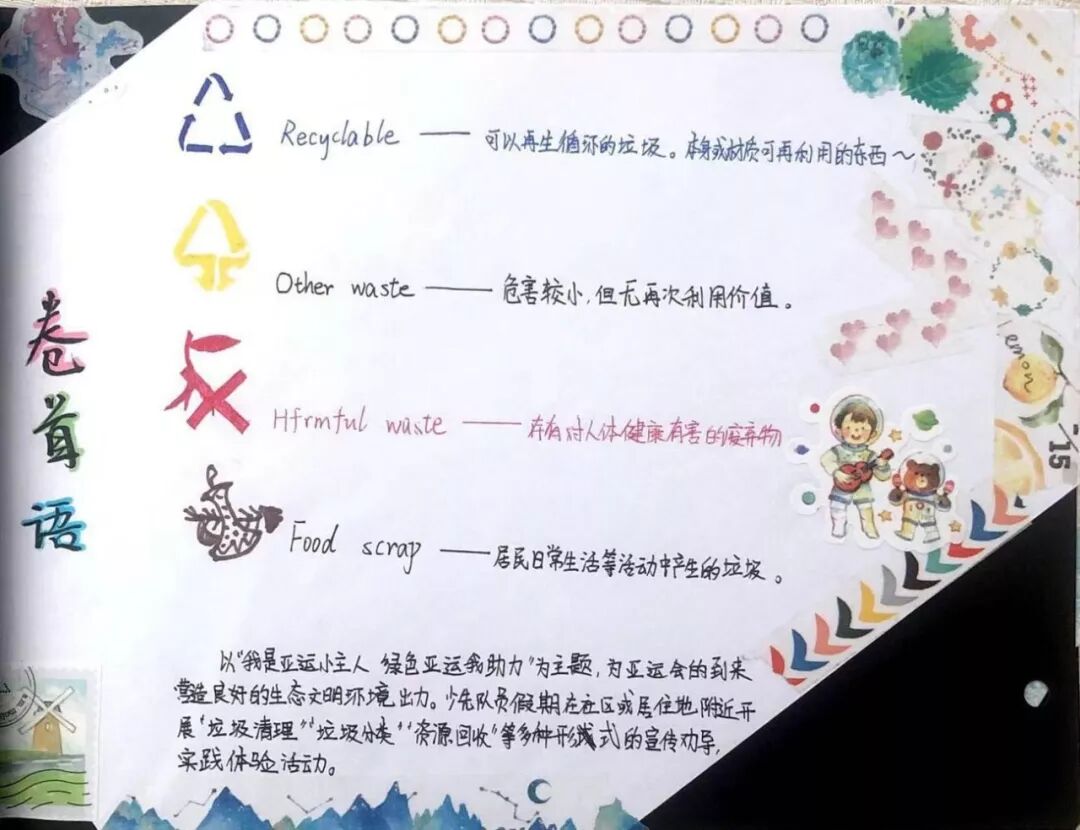 Recyclable —— 可以再生循环的垃圾。本身或材质可再利用的东西～
Other waste —— 危害较小,但无再次利用价值。
Hfrmful waste —— 存有对人体健康有害的废弃物
Food scrap —— 居民日常生活等活动中产生的垃圾。
卷首语
以“我是亚运小主人 绿色亚运我助力”为主题,为亚运会的到来
营造良好的生态文明环境出力。少先队员假期在社区或居住地附近开
展“垃圾清理”“垃圾分类”“资源回收”等多种形式的宣传劝导,
实践体验活动。
emon
/15